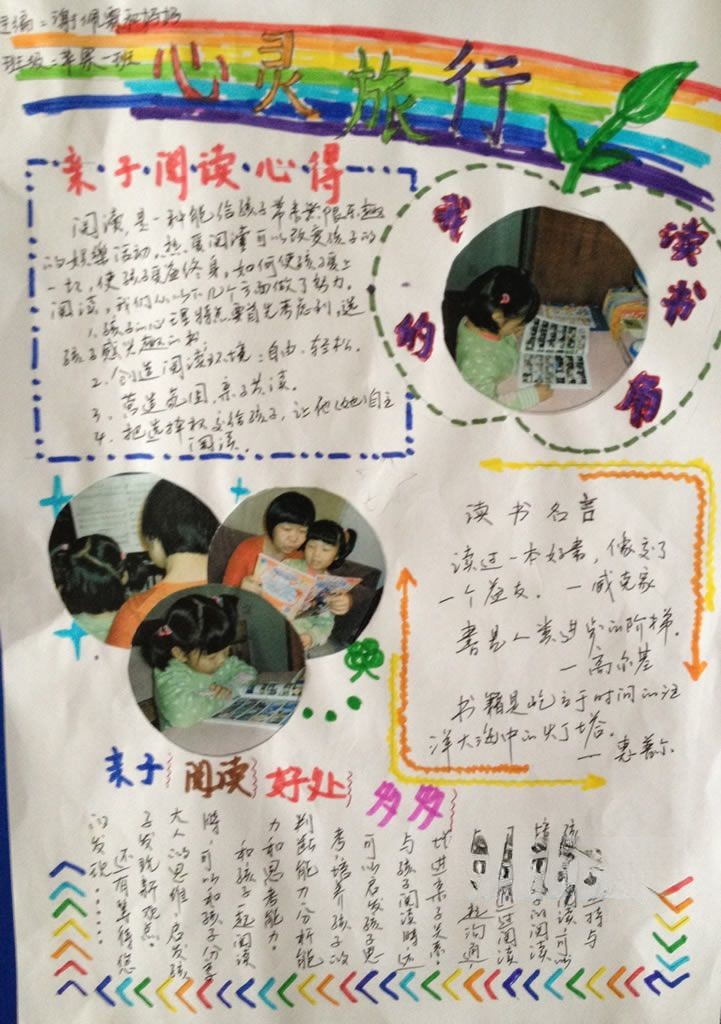 班级:苹果一班
心灵旅行
亲子阅读心得
阅读,是一种能给孩子带来无限乐趣
的娱乐活动,热爱阅读可以改变孩子的
一切,使孩子受益终身,如何使孩子爱上
阅读,我们从以下几个方面做了努力。
1.孩子的心理特点要首先考虑到,选
孩子感兴趣的书。
2.创造阅读环境:自由、轻松。
3、营造氛围,亲子共读。
4、把选择权交给孩子,让他(她)自主
阅读。
我的读书角
读书名言
读过一本好书,像交了
一个益友。 —臧克家
书是人类进步的阶梯。
—高尔基
书籍是屹立于时间的汪
洋大海中的灯塔。
— 惠普尔
亲子阅读好处多多
增进亲子关系。
与孩子阅读时还
可以启发孩子思
考,培养孩子的
判断能力,分析能
力和思考能力。
和孩子一起阅读
时,可以和孩子分享
大人的思维,启发孩
子发现新观点。
还有等待您
的发现……